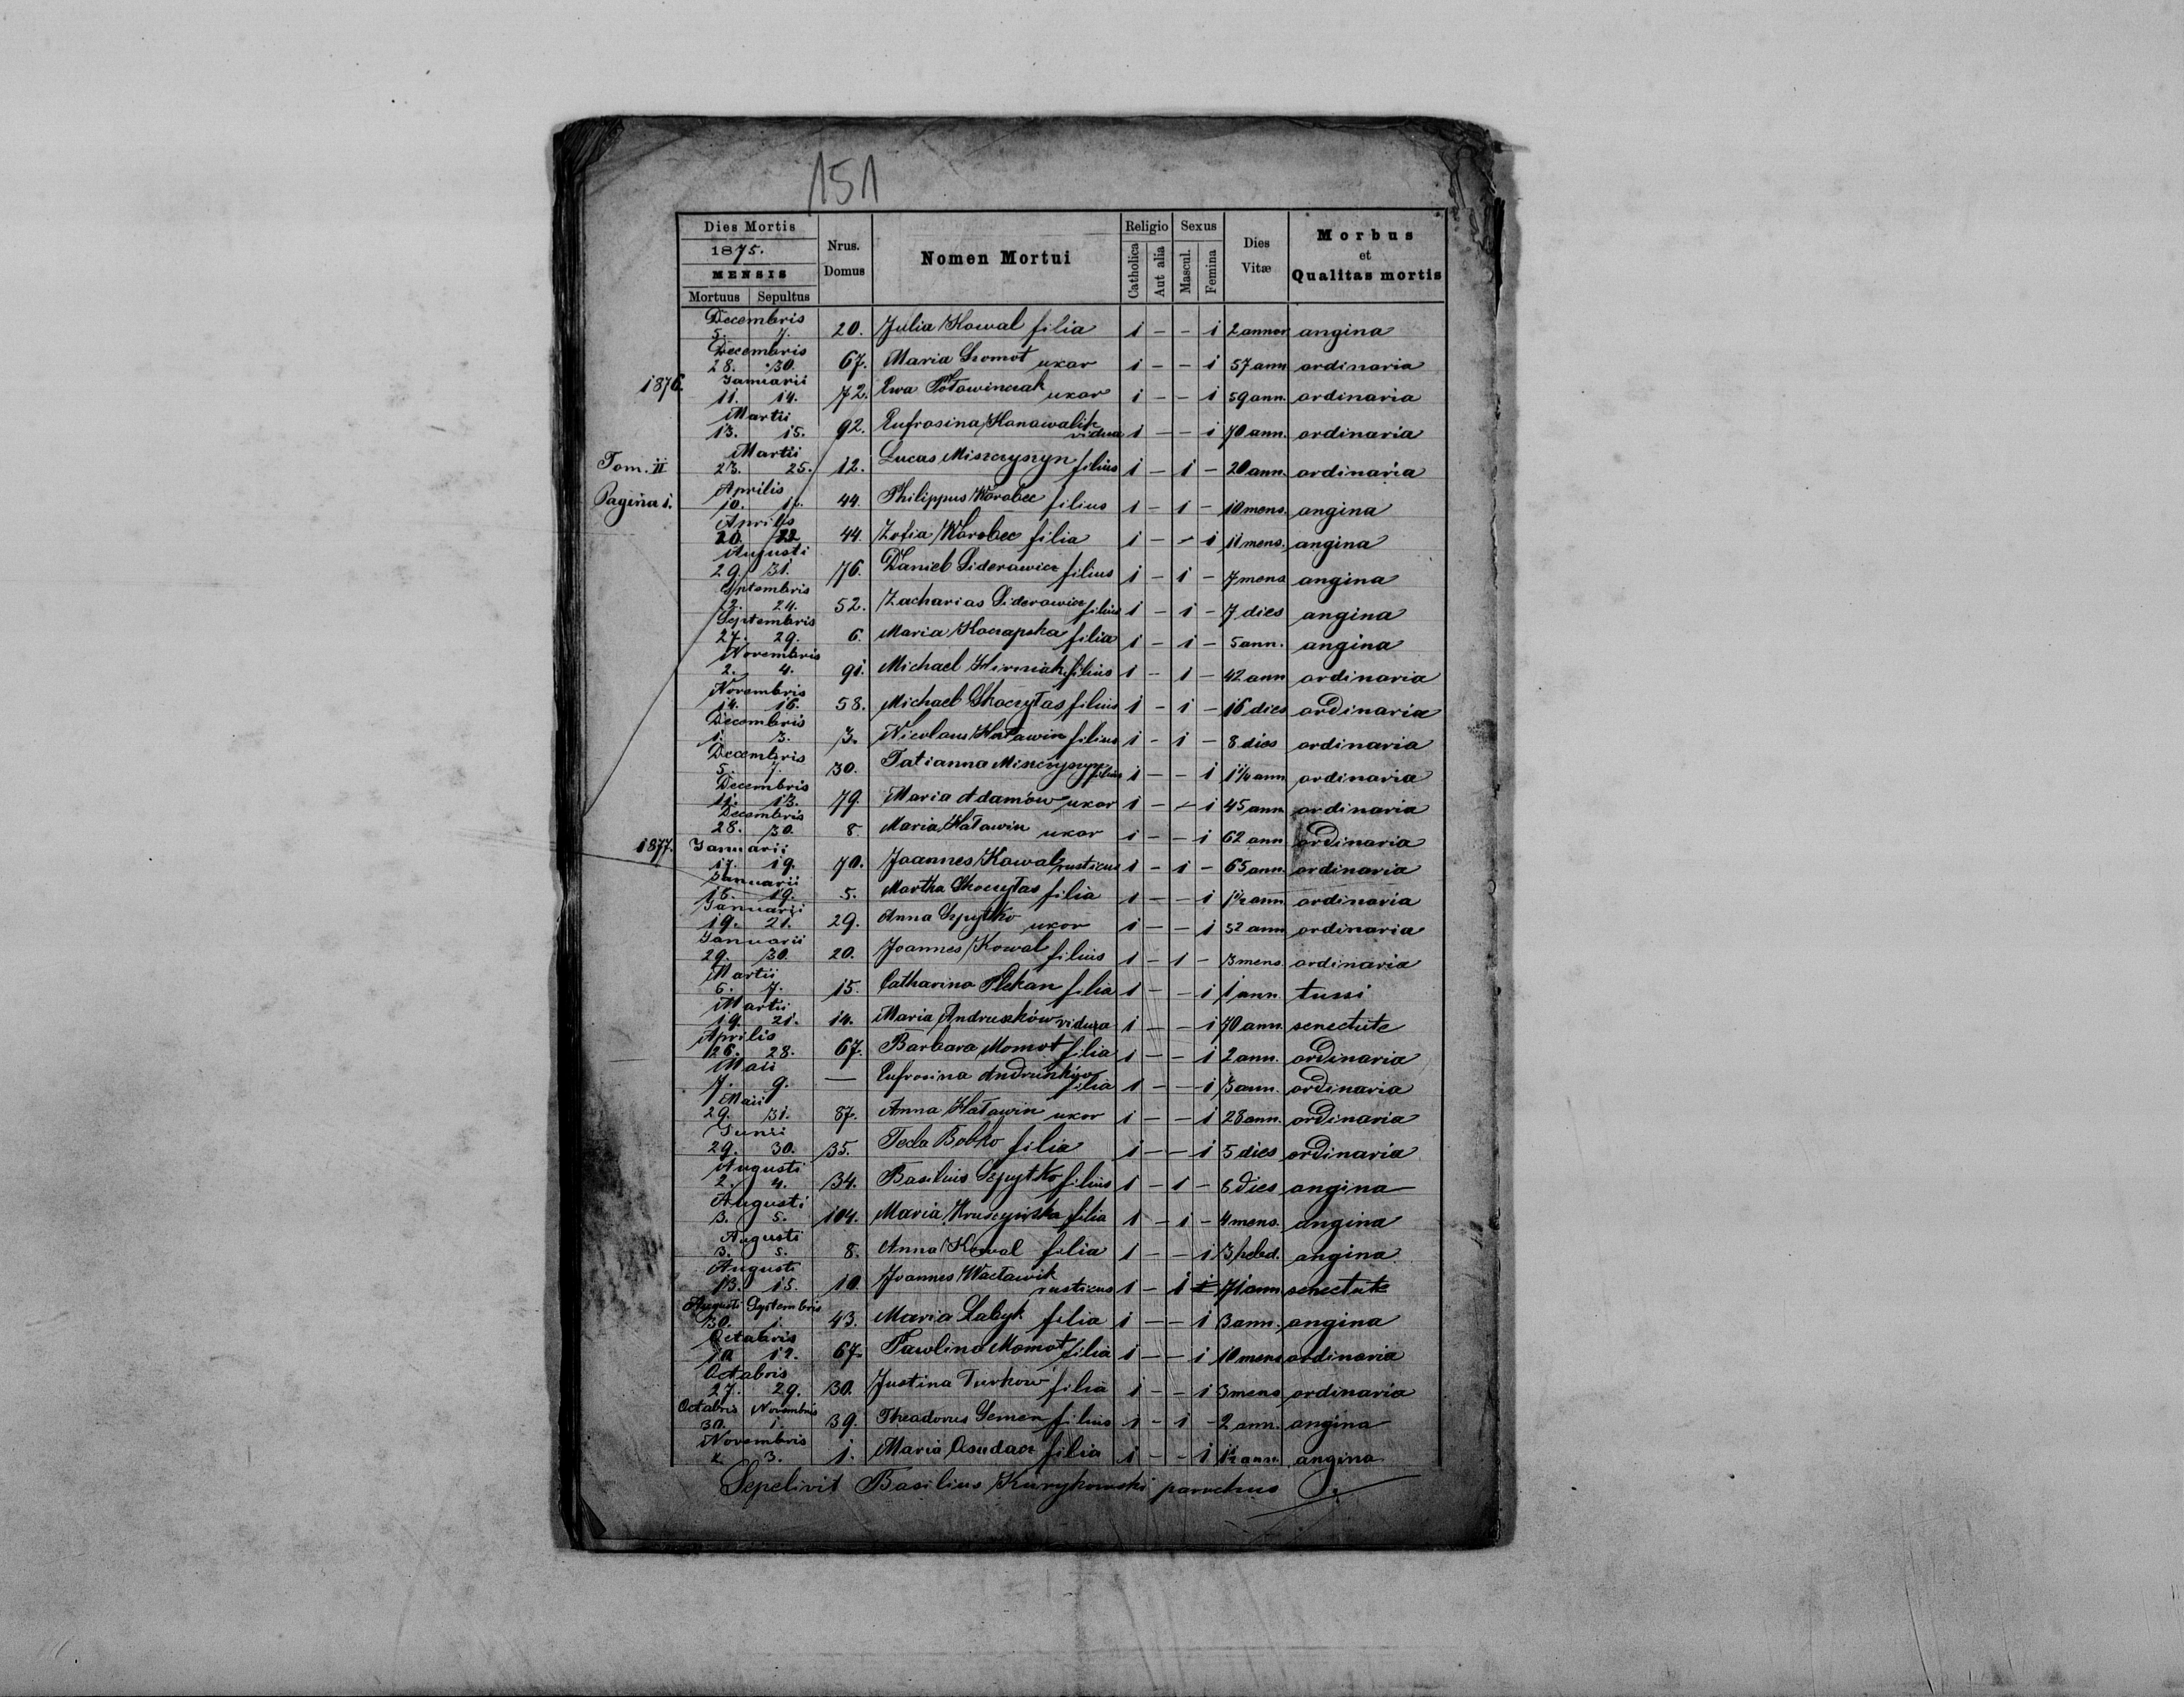 151
Dies Mortis Nrus. Domus Nomen Mortui Religio Sexus Dies Vitæ Morbus et Qualitas mortis
1875.
MENSIS Catholica Aut alia Mascul. Femina
Mortuus Sepultus
Decembris
5. 7. 20. Julia Kowal filia 1 - - 1 2 annor angina
Decembris
28. 30. 67. Maria uxor 1 - - 1 57 ann ordinaria
1876. Januarii
11. 14. 72. Ewa uxor 1 - - 1 59 ann. ordinaria
Martii
13. 15. 92. Eufrosina Hanawalik vidua 1 - - 1 70 ann. ordinaria
Tom. II Martii
23. 25. 12. Lucas Miszczyszyn filius 1 - 1 - 20 ann. ordinaria
Pagina 1. Aprilis
10. 44. Philippus Worobec filius 1 - 1 - 10 mens. angina
Aprilis
20. 22 44. Zofia Worobec filia 1 - - 1 11 mens. angina
Augusti
29. 31. 76. Daniel Siderawicz filius 1 - 1 - 7 mens angina
Septembris
24. 52. Zacharias Siderowicz filius 1 - 1 - 7 dies angina
Septembris
27. 29. 6. Maria filia 1 - 1 - 5 ann. angina
Novembris
2. 4. 91. Michael filius 1 - 1 - 42 ann ordinaria
Novembris
14. 16. 58. Michael Skoczylas filius 1 - 1 - 16 dies ordinaria
Decembris
1. 3. 3. Nicolaus Haławin filius 1 - 1 - 8 dies ordinaria
Decembris
5. 7. 30. Tatianna Miszczyszyn 1 - - 1 ann ordinaria
Decembris
11. 13. 79. Maria Adamów uxor 1 - - 1 45 ann ordinaria
Decembris
28. 30. 8. Maria Haławin uxor 1 - - 1 62 ann ordinaria
1877. Januarii
17. 19. 70. Joannes Kowal rusticus 1 - 1 - 65 ann. ordinaria
Januarii
16. 19. 5. Martha Skoczylas filia 1 - - 1 1½ ann ordinaria
Januarii
19. 21. 29. Anna Szpytko uxor 1 - - 1 52 ann ordinaria
Januarii
29. 30. 20. Joannes Kowal filius 1 - 1 - 3 mens. ordinaria
Martii
6. 7. 15. Catharina Plekan filia 1 - - 1 1 ann. tussi
Martii
19. 21. 14. Maria Andruszków vidua 1 - - 1 70 ann. senectute
Aprilis
26. 28. 67. Barbara Momot filia 1 - - 1 2 ann. ordinaria
Maii
7. 9. — Eufrosina filia 1 - - 1 3 ann. ordinaria
Maii
29. 31. 87. Anna Haławin uxor 1 - - 1 28 ann. ordinaria
Junii
29. 30. 35. Tecla Bobko filia 1 - - 1 5 dies ordinaria
Augusti
2. 4. 34. Basilius Szpytko filius 1 - 1 - 6 dies angina
Augusti
3. 5. 104. Maria filia 1 - 1 - 4 mens. angina
Augusti
3. 5. 8. Anna Kowal filia 1 - - 1 3 hebd. angina
Augusti
13. 15. 10. Joannes Wacławik rusticus 1 - 1 71 ann senectute
Augusti Septembris
30. 1. 43. Maria Labyk filia 1 - - 1 3 ann. angina
Octabris
10 12. 67. Pawlina Momot filia 1 - - 1 10 mens ordinaria
Octabris
27. 29. 30. Justina Turków filia 1 - - 1 3 mens ordinaria
Octabris Novembris
30. 1. 39. Theadorus Semen filius 1 - 1 - 2 ann. angina
Novembris
3. 1. Maria Osudacz filia 1 - - 1 1½ ann. angina
Sepelivit Basilius Kurykowski parochus